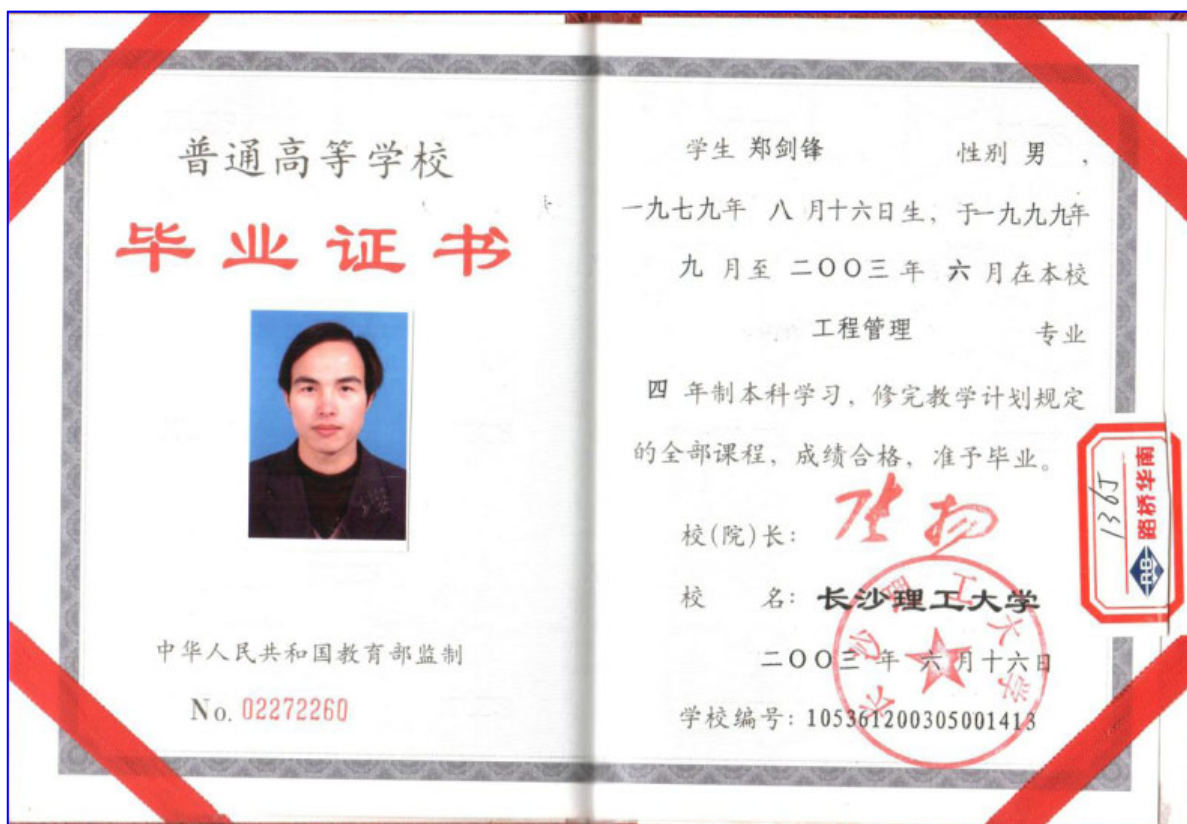 普通高等学校
毕业证书
中华人民共和国教育部监制
No. 02272260
学生 郑剑锋 性别 男 ,
一九七九年 八 月十六日生, 于一九九九年
九 月至 二〇〇三 年 六 月在本校
工程管理 专业
四 年制本科学习, 修完教学计划规定
的全部课程, 成绩合格, 准予毕业。
校(院)长:
校 名: 长沙理工大学
二〇〇三 年 六 月十六日
学校编号: 105361200305001413
长沙理工大学
1365
路桥华南
RB